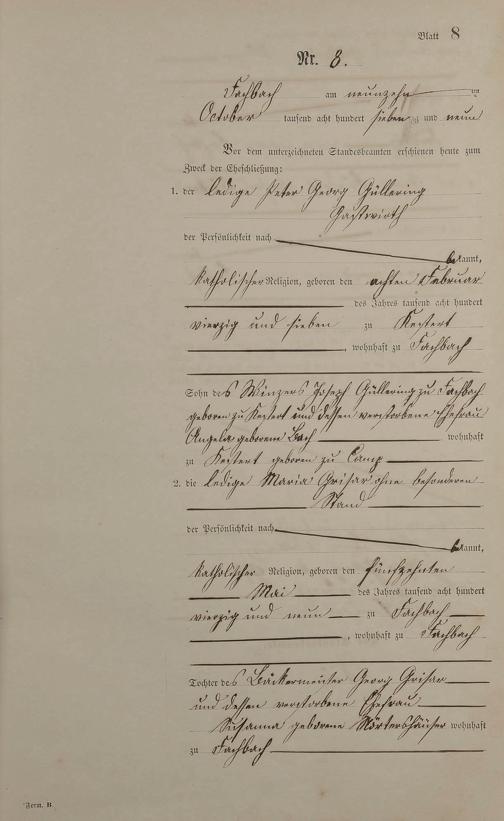 Blatt 8
Nr. 8.
Fachbach am neunzehn
October tausend acht hundert sieben zig und neun
Vor dem unterzeichneten Standesbeamten erschienen heute zum
Zweck der Eheschließung:
1. der ledige Peter Georg Güllering
Gastwirth
der Persönlichkeit nach
bekannt,
katholischer Religion, geboren den achten Februar
des Jahres tausend acht hundert
vierzig und sieben zu Kestert
, wohnhaft zu Fachbach
Sohn des Winzers Joseph Güllering zu Fachbach
geboren zu Kestert und dessen verstorbene Ehefrau
Angela geborene Bach wohnhaft
zu Kestert geboren zu Camp
2. die ledige Maria Grisar ohne besonderen
Stand
der Persönlichkeit nach
bekannt,
katholischer Religion, geboren den fünfzehnten
Mai des Jahres tausend acht hundert
vierzig und neun zu Fachbach
, wohnhaft zu Fachbach
Tochter des Bäckermeister Georg Grisar
und dessen verstorbene Ehefrau
Susanna geborene Mörtershäuser wohnhaft
zu Fachbach
Form. B.